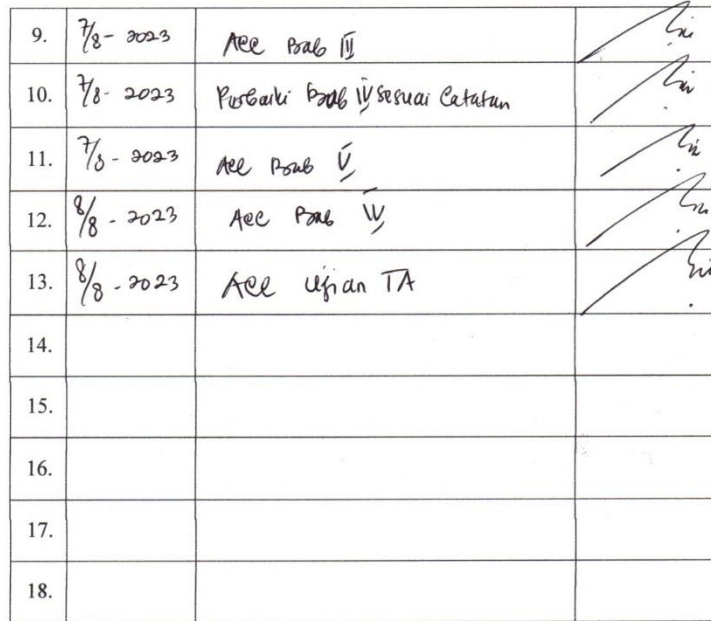 9. 7/8 - 2023 Acc Bab III
10. 7/8 - 2023 Perbaiki Bab IV sesuai Catatan
11. 7/8 - 2023 Acc Bab V
12. 8/8 - 2023 Acc Bab IV
13. 8/8 - 2023 Acc Ujian TA
14.
15.
16.
17.
18.